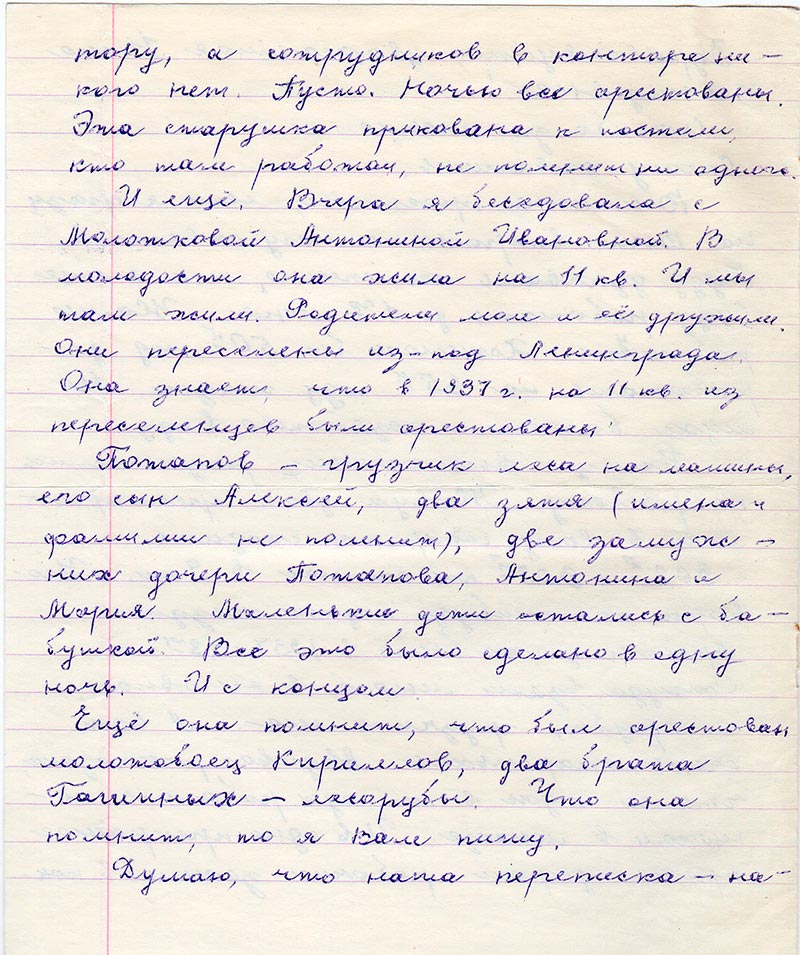 тору, а сотрудников в конторе ни-
кого нет. Пусто. Ночью все арестованы.
Эта старушка прикована к постели,
кто там работал, не помнит ни одного.
И ещё. Вчера я беседовала с
Молотковой Антониной Ивановной. В
молодости она жила на 11 кв. И мы
там жили. Родители мои и её дружили.
Они переселены из-под Ленинграда.
Она знает, что в 1937 г. на 11 кв. из
переселенцев были арестованы:
Потапов – грузчик леса на машины,
его сын Алексей, два зятя (имена и
фамилии не помнит), две замуж-
них дочери Потапова, Антонина и
Мария. Маленькие дети остались с ба-
бушкой. Все это было сделано в одну
ночь. И с концом.
Ещё она помнит, что был арестован
молотобоец Кириллов, два брата
– лесорубы. Что она
помнит, то я Вам пишу.
Думаю, что наша переписка – на-